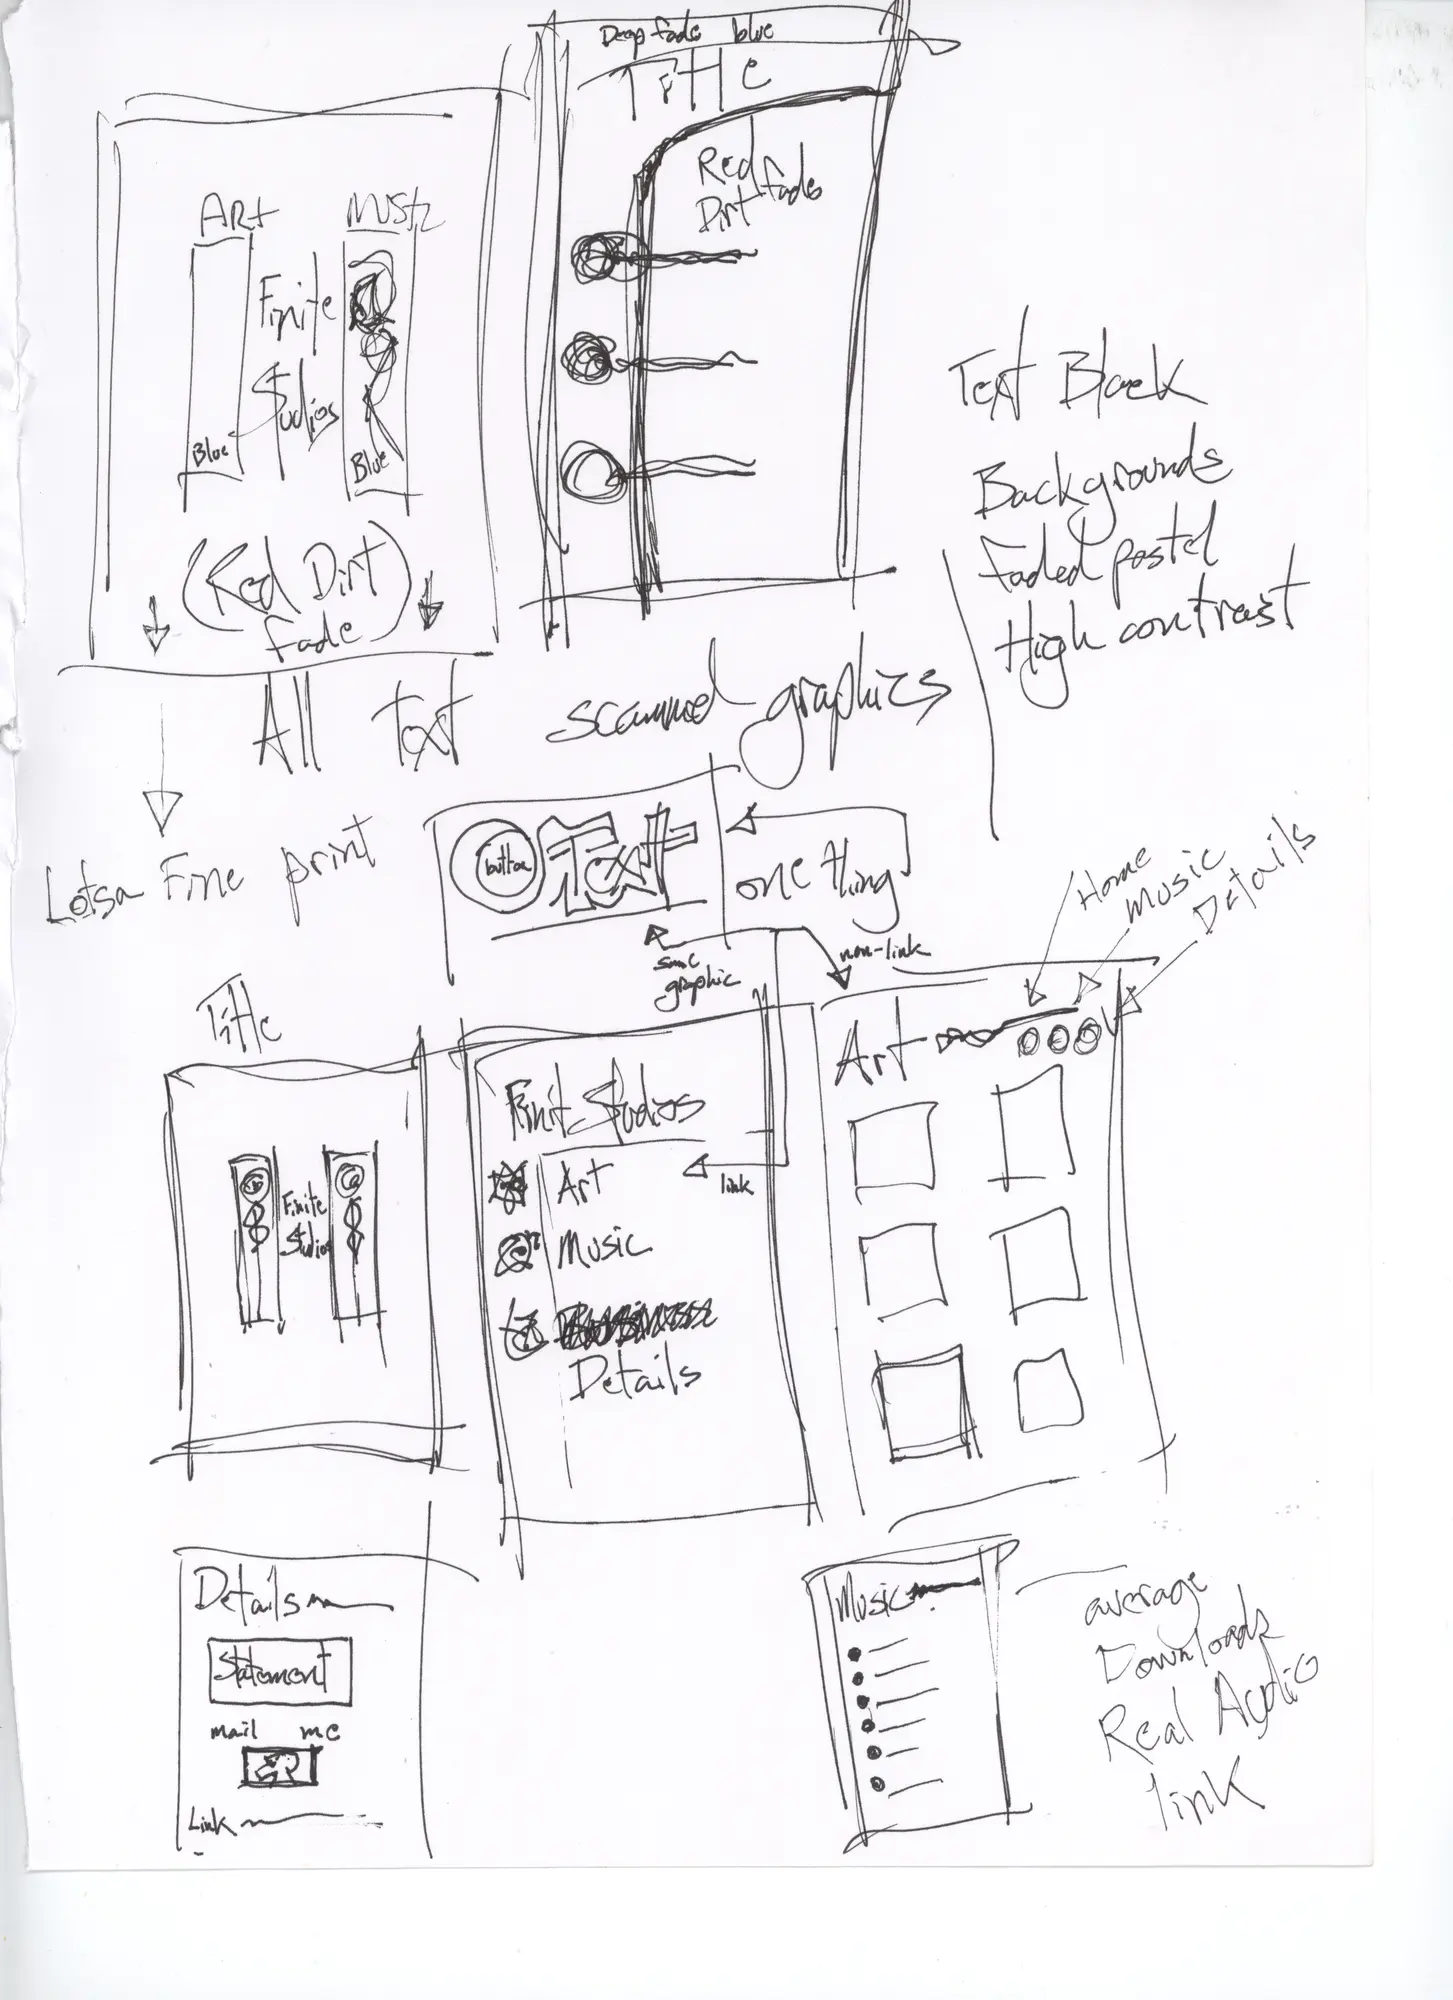 Deep fade blue
Title
Red
Dirt fade
ART
Music
Finite
Studios
Blue
Blue
(Red Dirt)
fade
All Text scanned graphics
Text Black
Backgrounds
faded pastel
High contrast
Lotsa Fine print
button
Text
one thing
same
graphic
non-link
Home
Music
Details
Title
Finite
Studios
Finit Studios
Art
link
Music
Details
Art
Details
Statement
mail me
Link
Music
average
Downloads
Real Audio
link